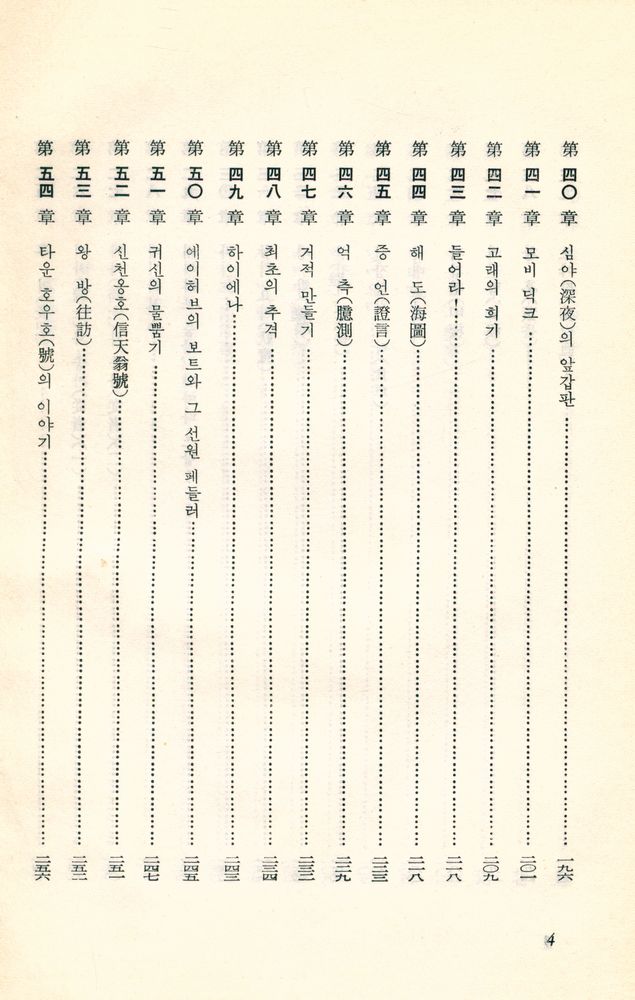 第四〇章 심야(深夜)의 앞갑판 一九六
第四一章 모비 딕크 二〇一
第四二章 고래의 희기 二〇九
第四三章 들어라! 二一八
第四四章 해 도(海圖) 二一八
第四五章 증 언(證言) 二二三
第四六章 억 측(臆測) 二二九
第四七章 거적 만들기 二三二
第四八章 최초의 추격 二三四
第四九章 하이에나 二四三
第五〇章 에이허브의 보트와 그 선원 페들러 二四五
第五一章 귀신의 물뿜기 二四七
第五二章 신천옹호(信天翁號) 二五一
第五三章 왕 방(往訪) 二五二
第五四章 타운 호우호(號)의 이야기 二五六
4